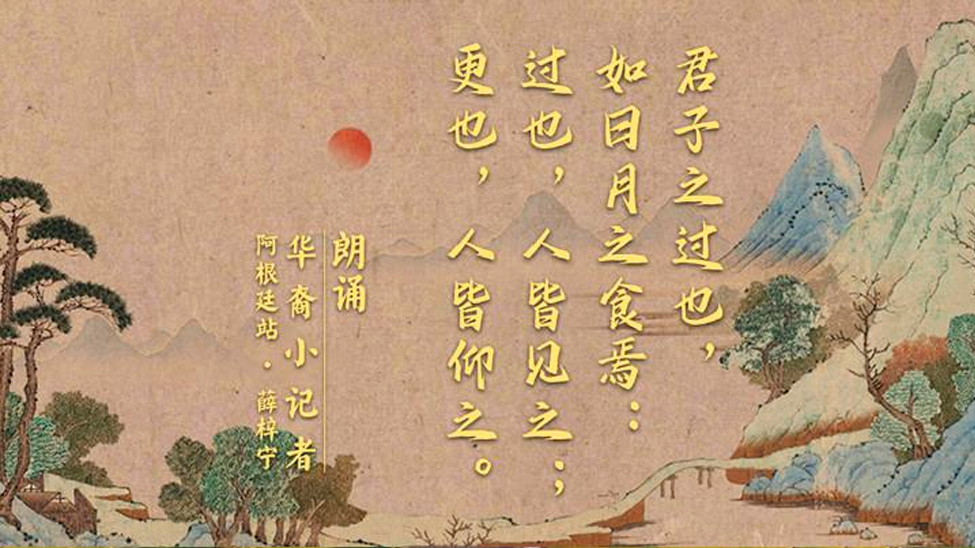 君子之过也，
如日月之食焉：
过也，人皆见之；
更也，人皆仰之。
朗诵
华裔小记者
阿根廷站·薛梓宁